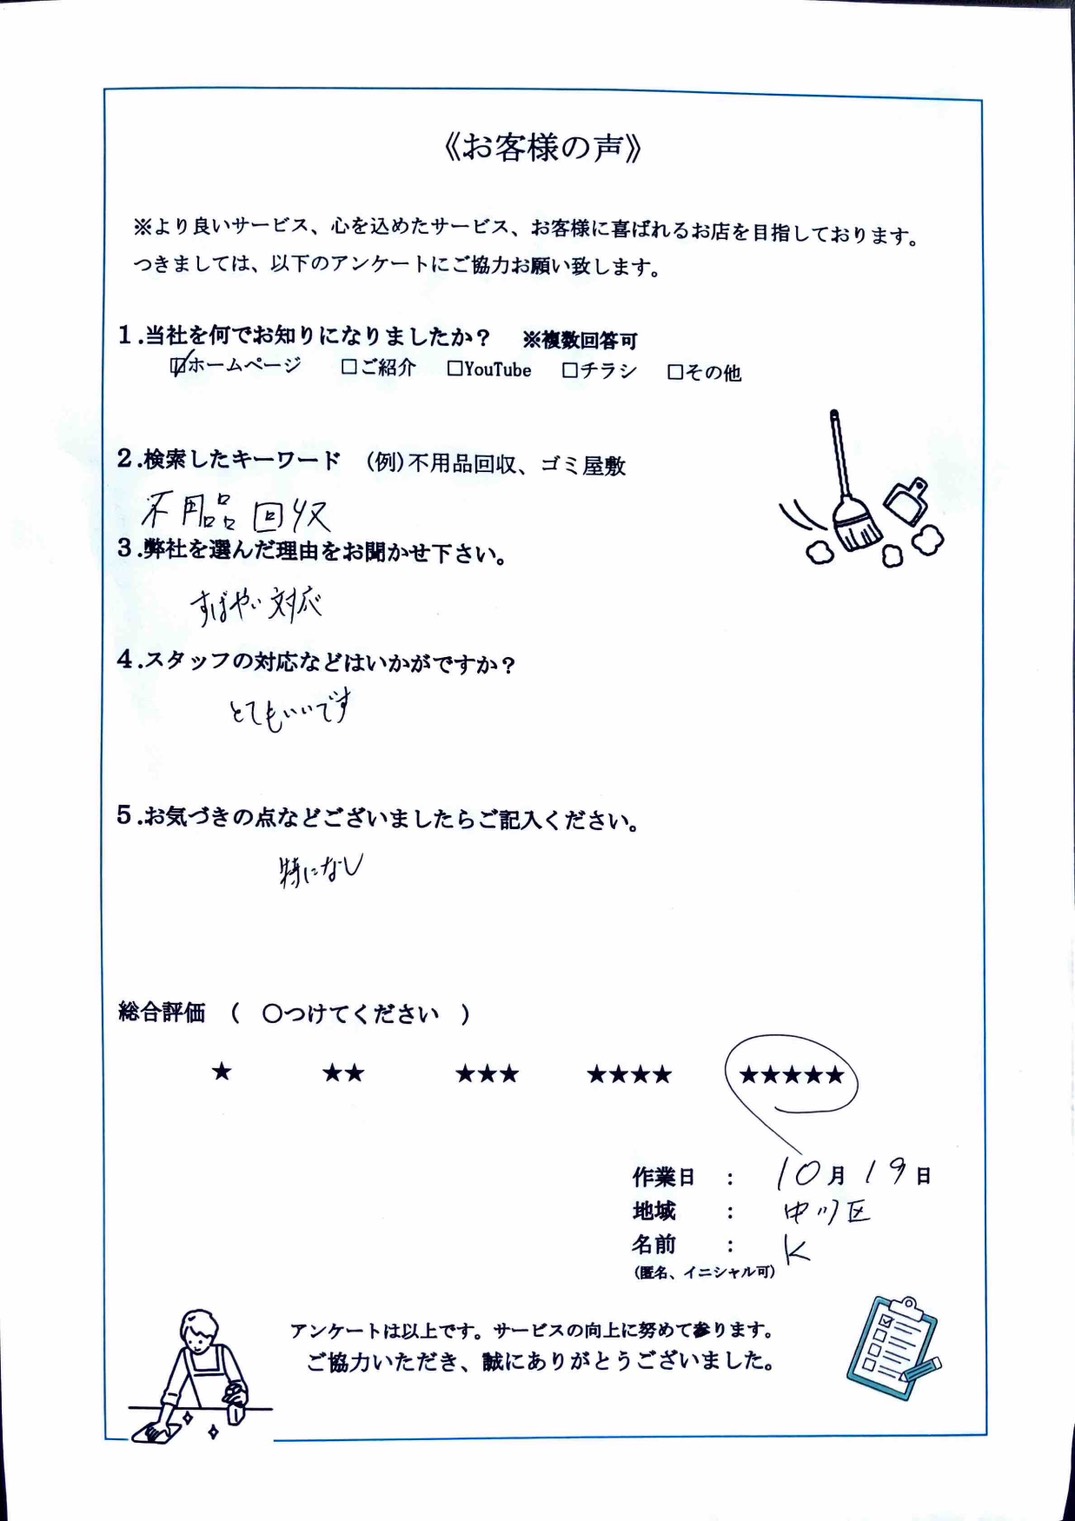 《お客様の声》
※より良いサービス、心を込めたサービス、お客様に喜ばれるお店を目指しております。
つきましては、以下のアンケートにご協力お願い致します。
1.当社を何でお知りになりましたか？　※複数回答可
☑ホームページ　□ご紹介　□YouTube　□チラシ　□その他
2.検索したキーワード　（例）不用品回収、ゴミ屋敷
不用品回収
3.弊社を選んだ理由をお聞かせ下さい。
すばやい対応
4.スタッフの対応などはいかがですか？
とてもいいです
5.お気づきの点などございましたらご記入ください。
特になし
総合評価　（　○つけてください　）
★　★★　★★★　★★★★　★★★★★
作業日　：　10月19日
地域　：　中川区
名前　：　K
（匿名、イニシャル可）
アンケートは以上です。サービスの向上に努めて参ります。
ご協力いただき、誠にありがとうございました。